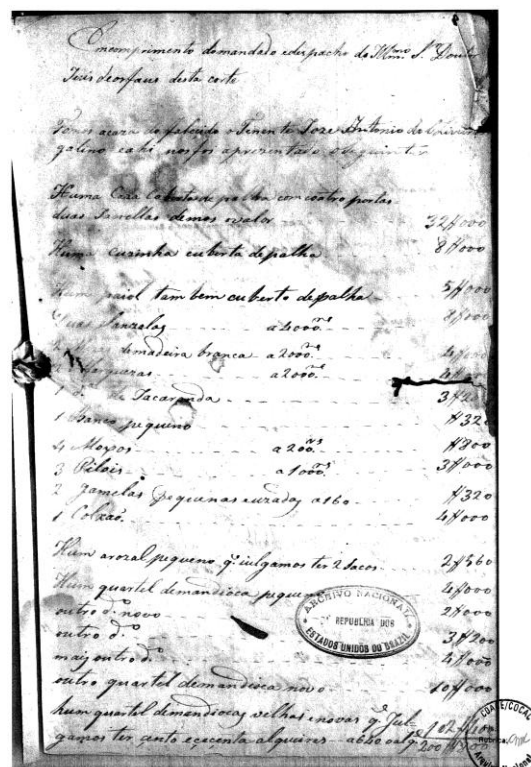 Em comprimento do mandado e despacho do Illmo. Sr. Doutor
Juis de orfaus desta corte
Fomos a caza do falecido o Tenente Joze Antonio de
galino e ahi nos foi aprezentado o seguinte
Huma Caza cuberta de palha com coatro portas
duas Janellas demos o valor 32#000
Huma cuzinha cuberta de palha 8#000
Hum paiol tambem cuberto de palha 5#000
Duas Sanzalas a 4000rs 8#000
de madeira branca a 2000rs 4#000
a 2000rs
de Jacaranda 3#200
1 Banco pequeno #320
4 Moxos a 200rs #800
3 Pilois a 1000rs 3#000
2 gamelas pequenas a 160 #320
1 Colxaõ 4#000
Hum arozal pequeno q. julgamos ter 2 sacos 2#560
Hum quartel de mandioca pequeno 4#000
outro do. novo 2#000
outro do. 3#200
mais outro do. 4#000
outro quartel de mandioca novo 10#000
hum quartel de mandiocas velhas e novas q. Jul-
gamos ter cento e cecenta alqueires a 640 o alq. 102#400
200#
ARCHIVO NACIONAL
REPUBLICA DOS
ESTADOS UNIDOS DO BRAZIL